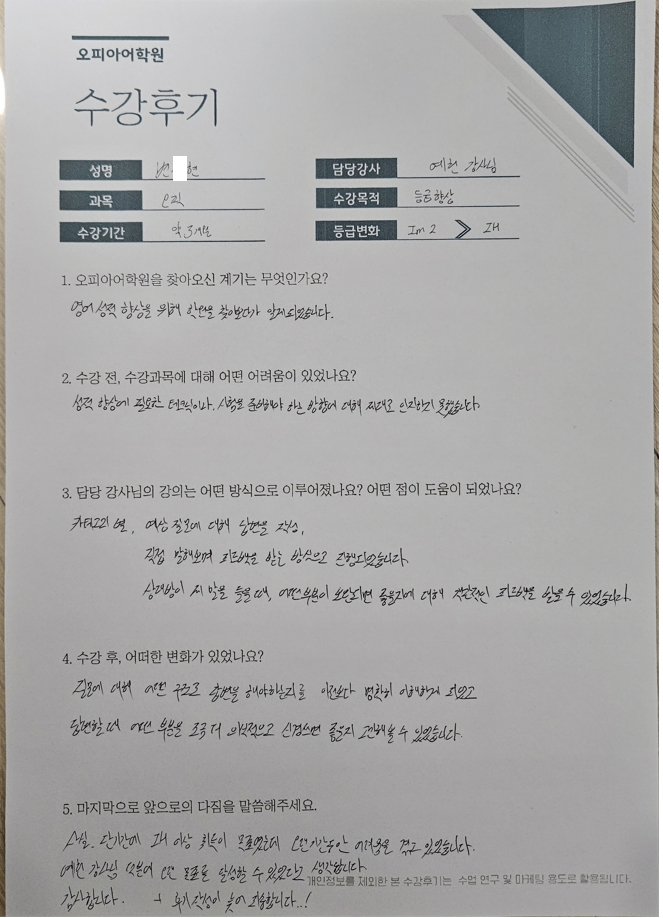 오피아어학원
수강후기
성명 변 현 담당강사 예린 강사님
과목 오픽 수강목적 등급향상
수강기간 약 3개월 등급변화 Im 2 > IH
1. 오피아어학원을 찾아오신 계기는 무엇인가요?
영어 성적 향상을 위해 학원을 찾아보다가 알게되었습니다.
2. 수강 전, 수강과목에 대해 어떤 어려움이 있었나요?
성적 향상에 필요한 테크닉이나, 시험을 준비해야 하는 방향에 대해 제대로 인지하지 못했습니다.
3. 담당 강사님의 강의는 어떤 방식으로 이루어졌나요? 어떤 점이 도움이 되었나요?
카테고리 별, 예상 질문에 대해 답변을 작성,
직접 말해보며 피드백을 받는 방식으로 진행되었습니다.
상대방이 제 말을 들을 때, 어떤부분이 보완되면 좋을지에 대해 객관적인 피드백을 받을 수 있었습니다.
4. 수강 후, 어떠한 변화가 있었나요?
질문에 대해 어떤 구조로 답변을 해야하는지를 이전보다 명확히 이해하게 되었고
답변할 때 어떤 부분을 조금 더 의식적으로 신경쓰면 좋을지 고민해볼 수 있었습니다.
5. 마지막으로 앞으로의 다짐을 말씀해주세요.
사실, 단기간에 IH 이상 취득이 목표였는데 오랜기간동안 어려움을 겪고 있었습니다.
예린 강사님 덕분에 오랜 목표를 달성할 수 있었다고 생각합니다.
개인정보를 제외한 본 수강후기는 수업 연구 및 마케팅 용도로 활용됩니다.
감사합니다. + 후기작성이 늦어 죄송합니다..!